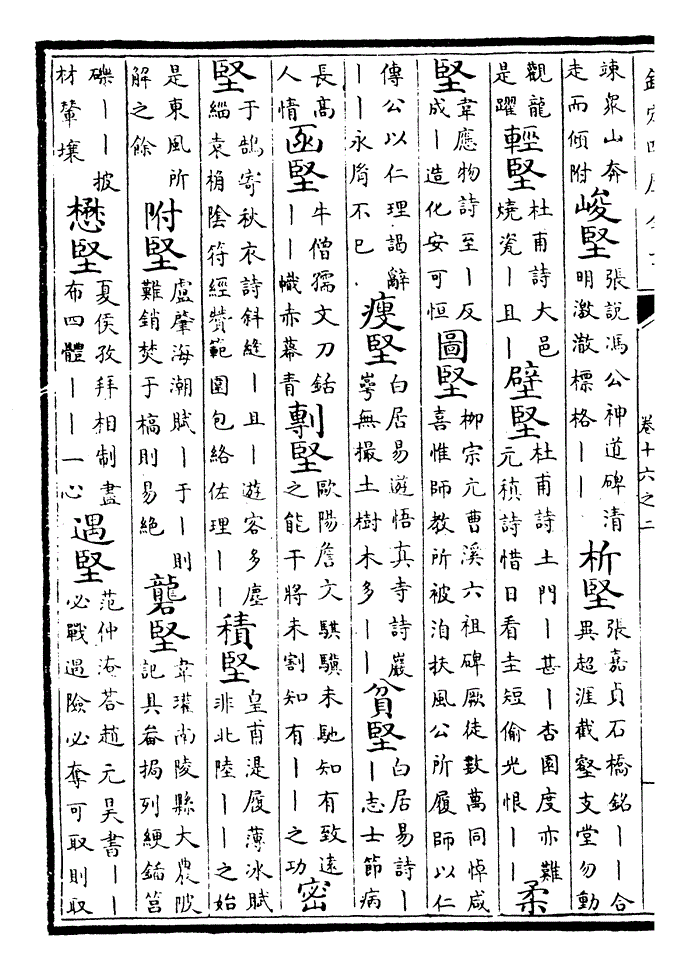 欽定四庫全書
卷十六之二
竦衆山奔
走而傾附
峻堅
張說馮公神道碑清
明激澈標格丨丨
析堅
張嘉貞石橋銘丨丨合
異超涯截壑支堂勿動
觀龍
是躍
輕堅
杜甫詩大邑
燒瓷丨且丨
壁堅
杜甫詩土門丨甚丨杏園度亦難
元稹詩惜日看圭短偷光恨丨丨
柔
堅
韋應物詩至丨反
成丨造化安可恒
圖堅
柳宗元曹溪六祖碑厥徒數萬同悼咸
喜惟師教所被洎扶風公所履師以仁
傳公以仁理謁辭
丨丨永脩不已
瘦堅
白居易遊悟真寺詩巖
崿無撮土樹木多丨丨
貧堅
白居易詩丨
丨志士節病
長高
人情
函堅
牛僧孺文刀銛
丨丨幟赤幕青
剸堅
歐陽詹文騏驥未馳知有致遠
之能干將未割知有丨丨之功
密
堅
于鵠寄秋衣詩斜縫丨且丨遊客多塵
緇袁桷陰符經贊範圍包絡佐理丨丨
積堅
皇甫湜履薄冰賦
非北陸丨丨之始
是東風所
解之餘
附堅
盧肇海潮賦丨于丨則
難銷焚于槁則易絶
礱堅
韋瓘南陵縣大農陂
記具畚挶列綆鍤筥
磔丨丨披
材輦壤
懋堅
夏侯孜拜相制盡
布四體丨丨一心
遇堅
范仲淹荅趙元昊書丨丨
必戰遇險必奪可取則取